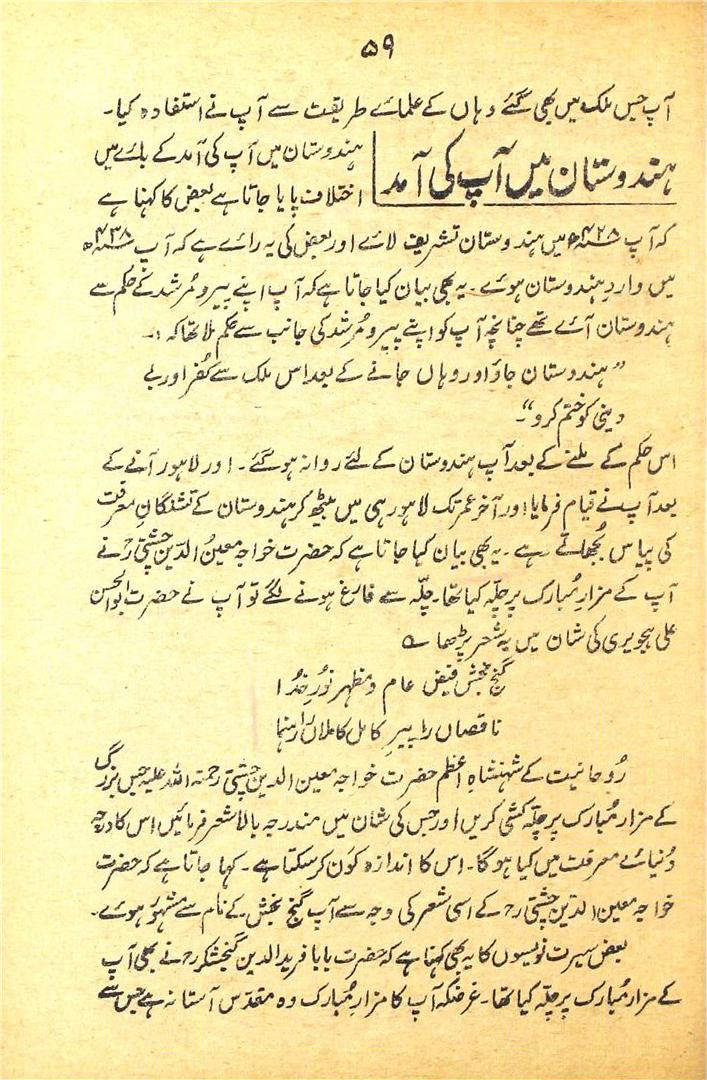 ۵۹
آپ جس ملک میں بھی گئے وہاں کے علمائے طریقت سے آپ نے استفادہ کیا۔
ہندوستان میں آپ کی آمد
ہندوستان میں آپ کی آمد کے بارے میں
اختلاف پایا جاتا ہے بعض کا کہنا ہے
کہ آپ ۴۲۸ھ میں ہندوستان تشریف لائے اور بعض کی یہ رائے ہے کہ آپ ۴۳۸ھ
میں واردِ ہندوستان ہوئے۔ یہ بھی بیان کیا جاتا ہے کہ آپ اپنے پیر و مُرشد کے حکم سے
ہندوستان آئے تھے چنانچہ آپ کو اپنے پیر و مُرشد کی جانب سے حکم ملا تھا کہ :۔
”ہندوستان جاؤ اور وہاں جانے کے بعد اس ملک سے کُفر اور بے
دینی کو ختم کرو“۔
اس حکم کے ملنے کے بعد آپ ہندوستان کے لئے روانہ ہو گئے۔ اور لاہور آنے کے
بعد آپ نے قیام فرمایا اور آخر عمر تک لاہور ہی میں بیٹھ کر ہندوستان کے تشنگانِ معرفت
کی پیاس بُجھاتے رہے۔ یہ بھی بیان کیا جاتا ہے کہ حضرت خواجہ معینُ الدین چشتیؒ نے
آپ کے مزارِ مُبارک پر چلّہ کیا تھا۔ چلّہ سے فارغ ہونے لگے تو آپ نے حضرت ابوالحسن
علی ہجویری کی شان میں یہ شعر پڑھا ؎
گنج بخش فیض عام و مظہر نُورِ خُدا
ناقصاں را پیرِ کامل کاملاں را رہنما
رُوحانیت کے شہنشاہِ اعظم حضرت خواجہ معین الدین چشتی رحمتہ اللہ علیہ جس بزرگ
کے مزار مُبارک پر چلّہ کشی کریں اور جس کی شان میں مندرجہ بالا شعر فرمائیں اس کا درجہ
دُنیائے معرفت میں کیا ہو گا۔ اس کا اندازہ کون کر سکتا ہے۔ کہا جاتا ہے کہ حضرت
خواجہ معین الدّین چشتی رح کے اسی شعر کی وجہ سے آپ گنج بخش کے نام سے مشہور ہوئے۔
بعض سیرت نویسوں کا یہ بھی کہنا ہے کہ حضرت بابا فرید الدین گنجشکر رح نے بھی آپ
کے مزار مُبارک پر چلّہ کیا تھا۔ غرضکہ آپ کا مزارِ مُبارک وہ مقدّس آستانہ ہے جس سے